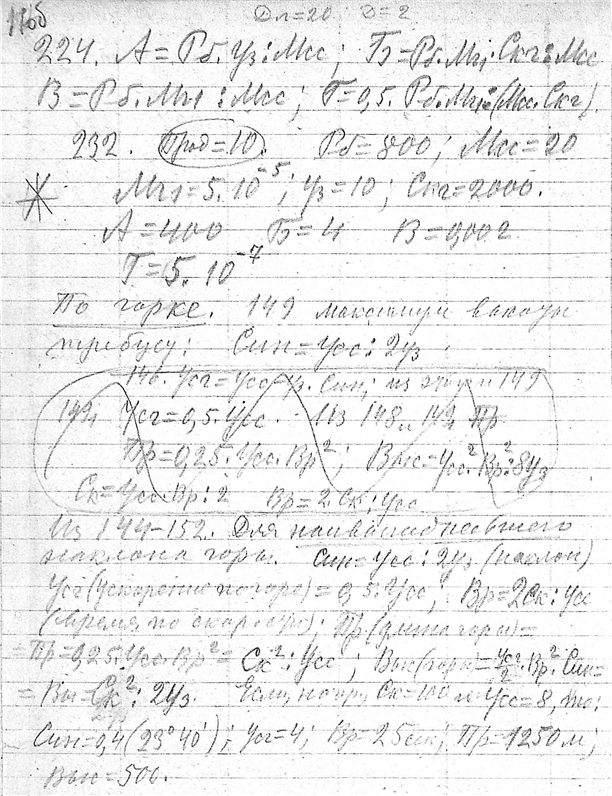 Дл=20 D=2
224. А=Рб.Уз:Мсс; Б=Рб.Мг1.Скг:Мсс
В=Рб.Мг1:Мсс; Г=0,5.Рб.Мг1:(Мсс.Скг).
232. Прод=10. Рб=800; Мсс=20
Мг1=5.10⁻⁵; Уз=10; Скг=2000.
А=400 Б=4 В=0,002
Г=5.10⁻⁷
По горке. 149 максимум высоты
требует: Син=Усс:2Уз
146. Усг=Усс-Уз.Син; из этого и 149
149, Усг=0,5.Усс. Из 148 и 149 Пр
Пр=0,25.Усс.Вр²; Выс=Усс².Вр²:8Уз
Ск=Усс.Вр:2 Вр=2.Ск:Усс
Из 144-152. Для наивыгоднейшего
наклона горы. Син=Усс:2Уз (наклон)
Усг(ускорение по горе)=0,5.Усс; Вр=2Ск:Усс
(время по скорости); Пр(длина горы)=
=Пр=0,25.Усс.Вр²=Ск²:Усс; Выс(горы)=Усг/2.Вр².Син=
=Вы=Ск²:2Уз. Если, напр., Ск=100 м Усс=8, то:
Син=0,4(23°40'); Усг=4; Вр=25сек; Пр=1250м;
Выс=500.